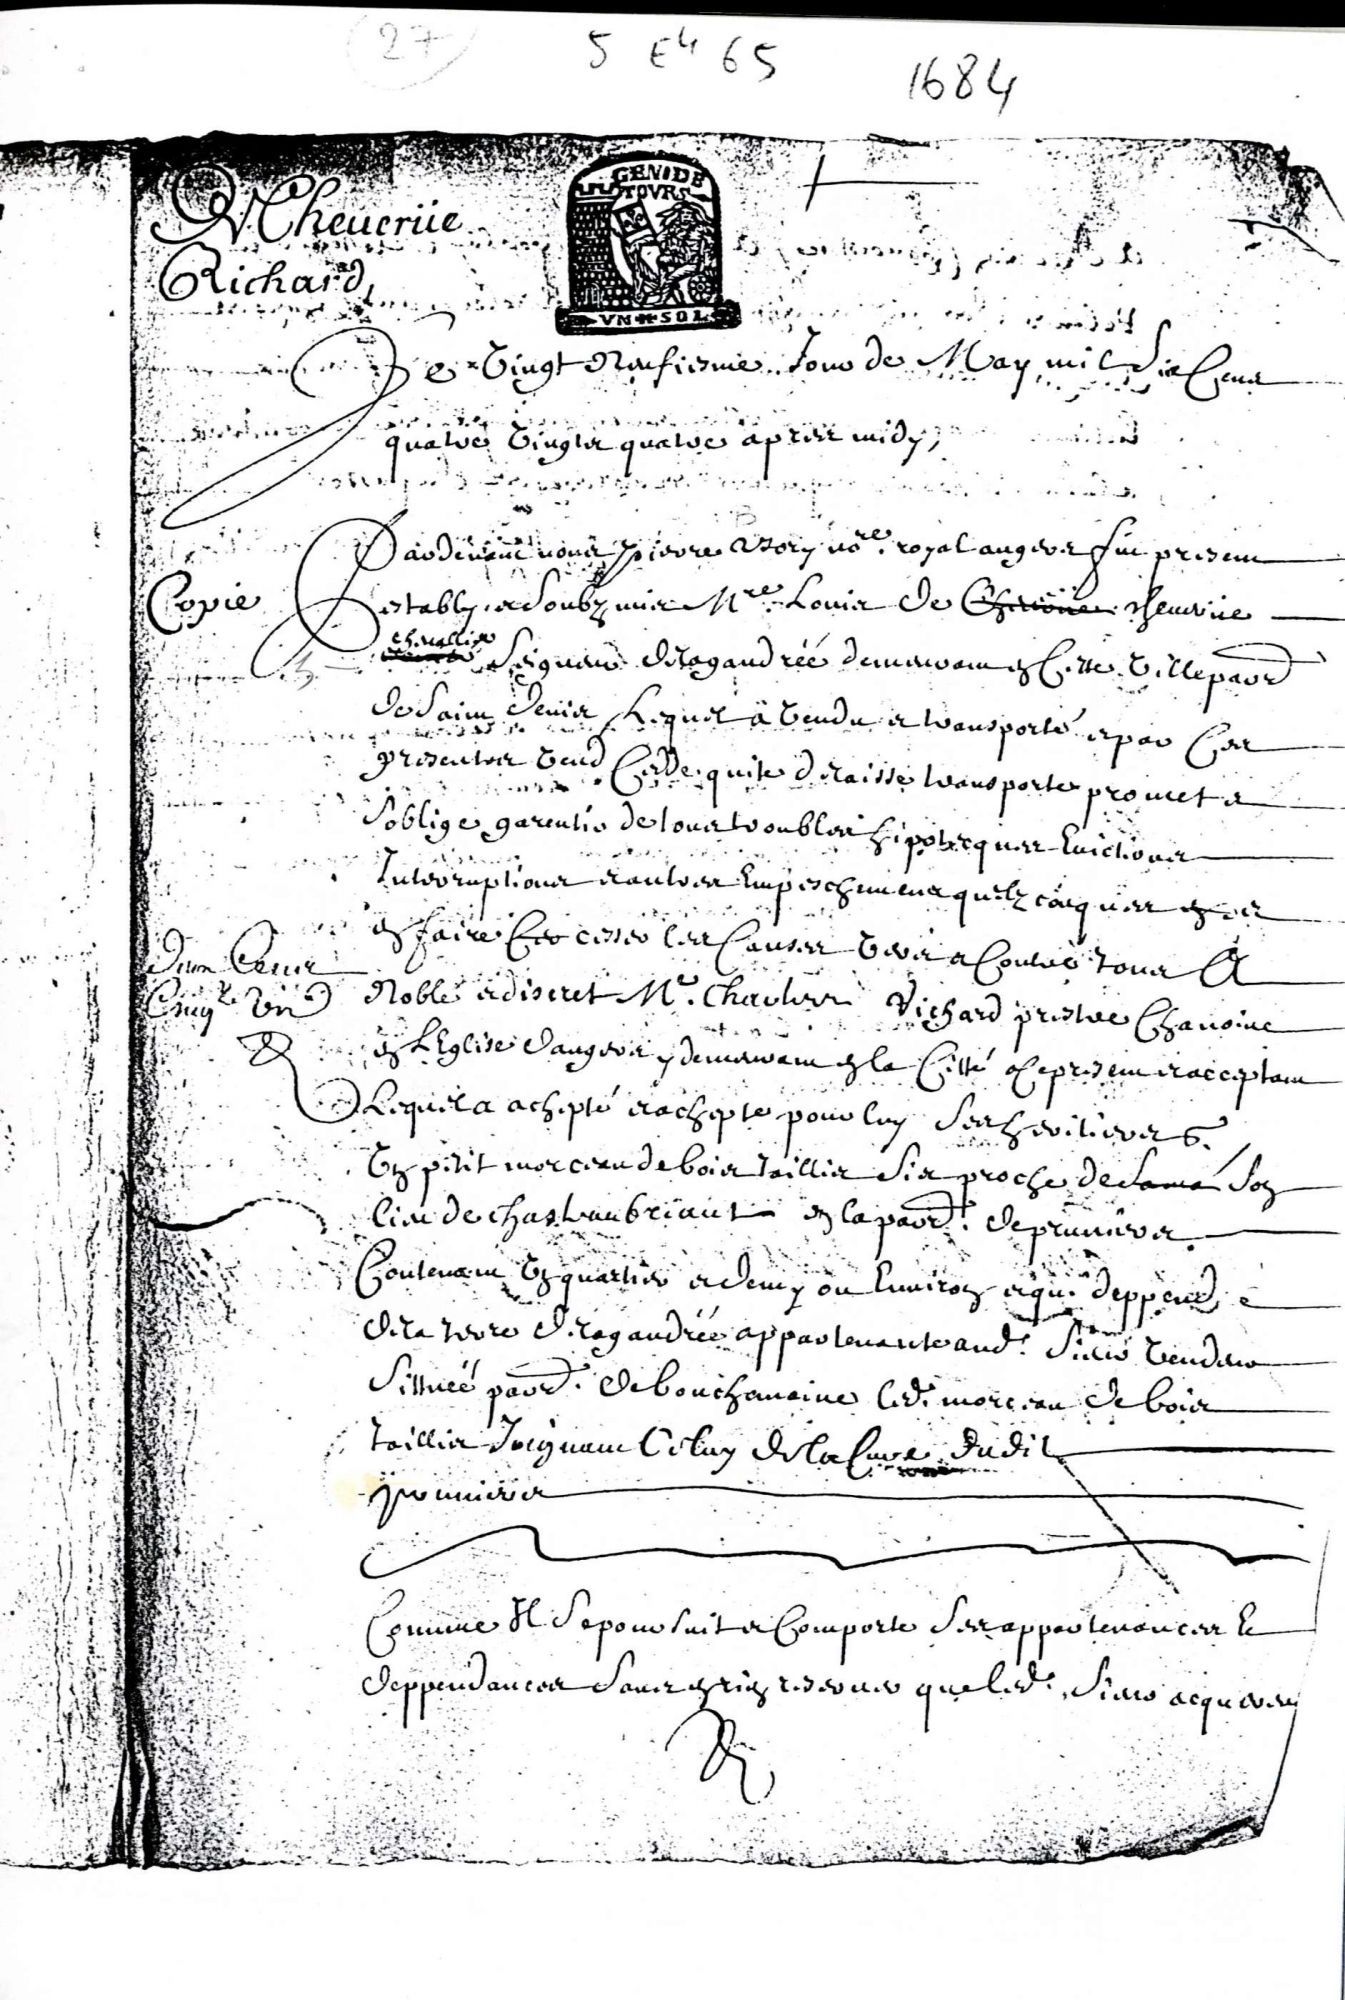 27
5 E4 65
1684
Cheverüe
Richard,
GEN DE
TOVRS
VN SOL
Le Vingt Neufiesme Jour de May mil Six Cens
quatre Vingts quatre apres midy,
Pardevant nous Pierre nore. royal angers fut present
Copie
estably et soubzmis Mre. Louis de Cheverüe Cheverüe
chevallier
Seigneur de la gaudréé demeurant en Cette Ville parr.
de Saint Denis Lequel a Vendu et transporté et par Ces
presentes Vend Cedde quite delaisse transporte promet et
s'oblige garentir de tous troubles hipotecques Evictions
Interruptions et autres Empeschemens quelzconques et
en faire cesser les Causes Vers et Contre tous A
Noble et discret Me. Charles Richard prestre Chanoine
en L'Eglise d'angers y demeurant en la Citté a Ce present et acceptant
Lequel a achepté et achepte pour luy Ses heritiers &.
Un petit morceau de bois taillis Sis proche de Son
lieu de chasteaubriant en la parr. de prunieres
Contenant Un quartier et demy ou Environ et qui deppend
de la terre de la gaudréé appartenante aud. Sieur Vendeur
Sittuéé parr. de bouchemaine led. morceau de bois
taillis Joignant Celuy de la Cure dudit
prunieres
Comme Il Se poursuit et Comporte Ses appartenances Et
deppendances Sans en rien reserver que led. Sieur acquereur